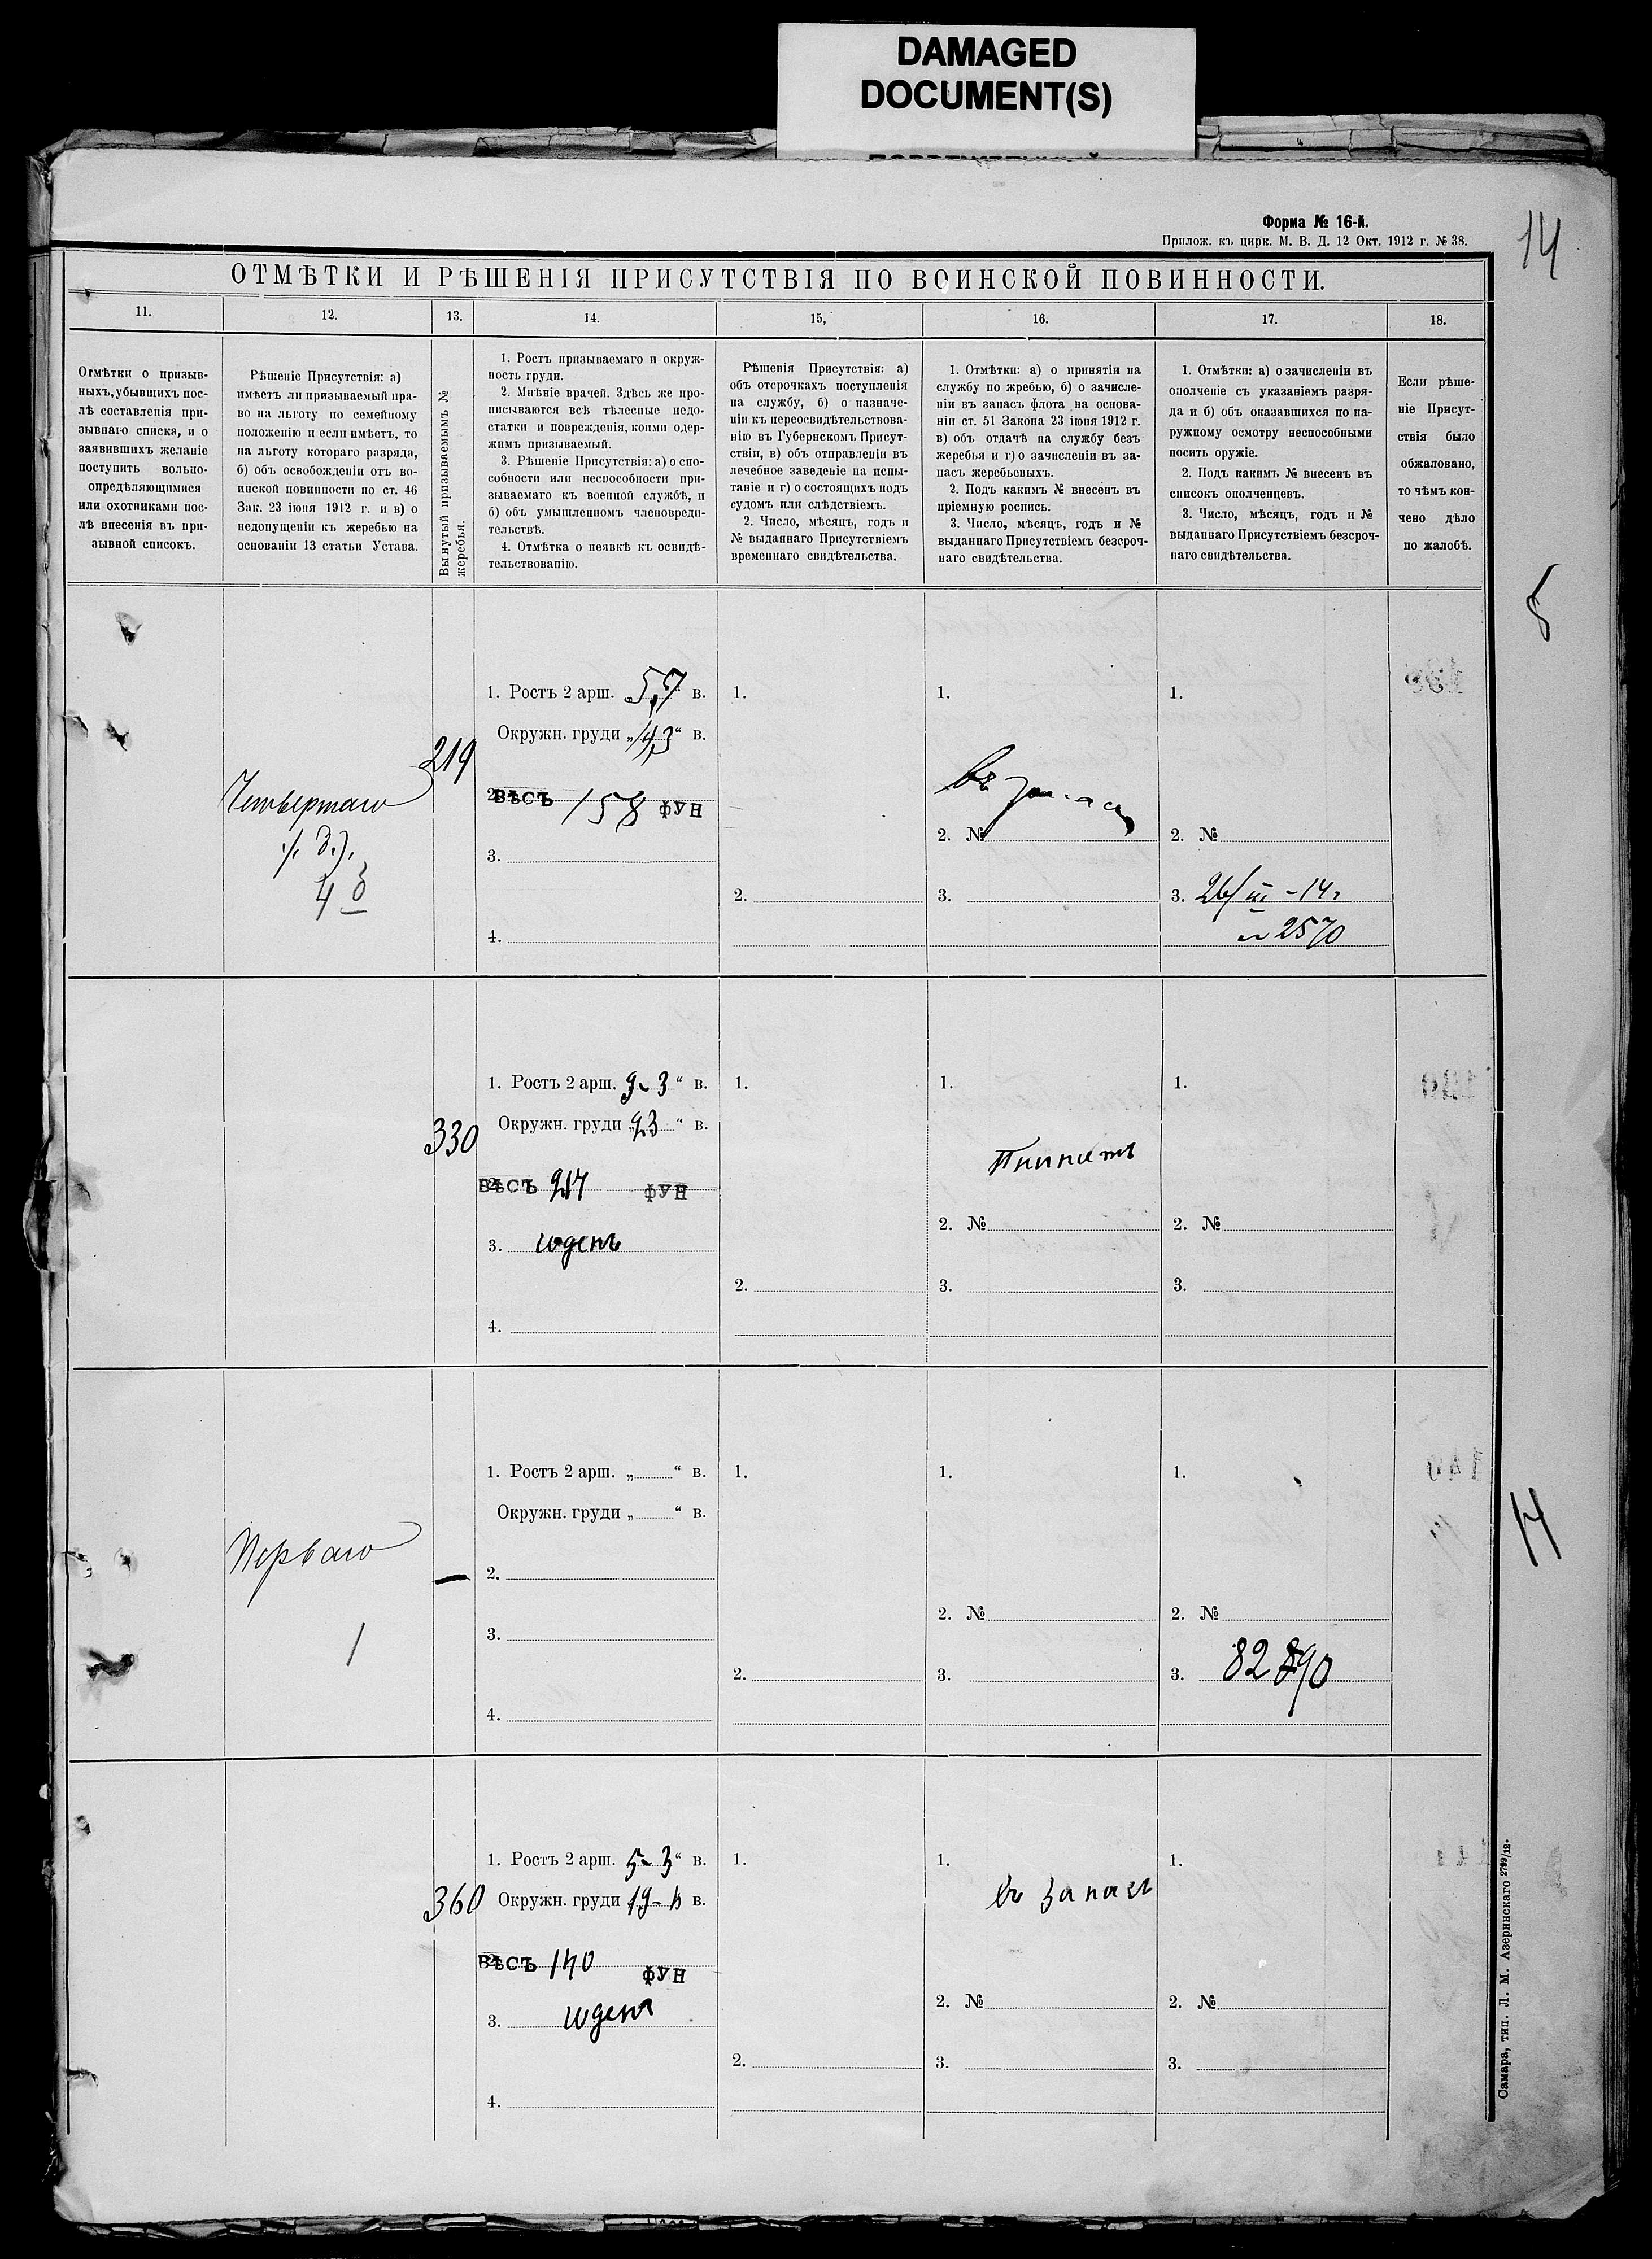 DAMAGED
DOCUMENT(S)
Форма № 16-й.
Прилож. къ цирк. М. В. Д. 12 Окт. 1912 г. № 38.
14
ОТМѢТКИ И РѢШЕНІЯ ПРИСУТСТВІЯ ПО ВОИНСКОЙ ПОВИННОСТИ.
11.
12.
13.
14.
15,
16.
17.
18.
Отмѣтки о призыв-
ныхъ, убывшихъ пос-
лѣ составленія при-
зывнаго списка, и о
заявившихъ желаніе
поступить вольно-
опредѣляющимися
или охотниками пос-
лѣ внесенія въ при-
зывной списокъ.
Рѣшеніе Присутствія: а)
имѣетъ ли призываемый пра-
во на льготу по семейному
положенію и если имѣетъ, то
на льготу котораго разряда,
б) объ освобожденіи отъ во-
инской повинности по ст. 46
Зак. 23 іюня 1912 г. и в) о
недопущеніи къ жеребью на
основаніи 13 статьи Устава.
Вынутый призываемымъ №
жеребья.
1. Ростъ призываемаго и окруж-
ность груди.
2. Мнѣніе врачей. Здѣсь же про-
писываются всѣ тѣлесные недо-
статки и поврежденія, коими одер-
жимъ призываемый.
3. Рѣшеніе Присутствія: а) о спо-
собности или неспособности при-
зываемаго къ военной службѣ, и
б) объ умышленномъ членовреди-
тельствѣ.
4. Отмѣтка о неявкѣ къ освидѣ-
тельствованію.
Рѣшенія Присутствія: а)
объ отсрочкахъ поступленія
на службу, б) о назначе-
ніи къ переосвидѣтельствова-
нію въ Губернскомъ Присут-
ствіи, в) объ отправленіи въ
лечебное заведеніе на испы-
таніе и г) о состоящихъ подъ
судомъ или слѣдствіемъ.
2. Число, мѣсяцъ, годъ и
№ выданнаго Присутствіемъ
временнаго свидѣтельства.
1. Отмѣтки: а) о принятіи на
службу по жребью, б) о зачисле-
ніи въ запасъ флота на основа-
ніи ст. 51 Закона 23 іюня 1912 г.
в) объ отдачѣ на службу безъ
жеребья и г) о зачисленіи въ за-
пасъ жеребьевыхъ.
2. Подъ какимъ № внесенъ въ
пріемную роспись.
3. Число, мѣсяцъ, годъ и №
выданнаго Присутствіемъ безсроч-
наго свидѣтельства.
1. Отмѣтки: а) о зачисленіи въ
ополченіе съ указаніемъ разря-
да и б) объ оказавшихся по на-
ружному осмотру неспособными
носить оружіе.
2. Подъ какимъ № внесенъ въ
списокъ ополченцевъ.
3. Число, мѣсяцъ, годъ и №
выданнаго Присутствіемъ безсроч-
наго свидѣтельства.
Если рѣше-
ніе Присут-
ствія было
обжаловано,
то чѣмъ кон-
чено дѣло
по жалобѣ.
Четвертаго
219
1. Ростъ 2 арш. 5,7 в.
Окружн. груди „ “ в.
ВѢСЪ 158 ФУН
3.
4.
1.
2.
1.
въ запасъ
2. №
3.
1.
2. №
3. 26/III – 14 г
№ 2570
330
1. Ростъ 2 арш. 9-3 “ в.
Окружн. груди „23 “ в.
ВѢСЪ 217 ФУН
3. годенъ
4.
1.
2.
1.
Принятъ
2. №
3.
1.
2. №
3.
Перваго
1
—
1. Ростъ 2 арш. „ “ в.
Окружн. груди „ “ в.
2.
3.
4.
1.
2.
1.
2. №
3.
1.
2. №
3.
14
360
1. Ростъ 2 арш. 5-3 “ в.
Окружн. груди в.
ВѢСЪ 140 ФУН
3. годенъ
4.
1.
2.
1.
въ запасъ
2. №
3.
1.
2. №
3.
Самара, тип. Л. М. Азеринскаго